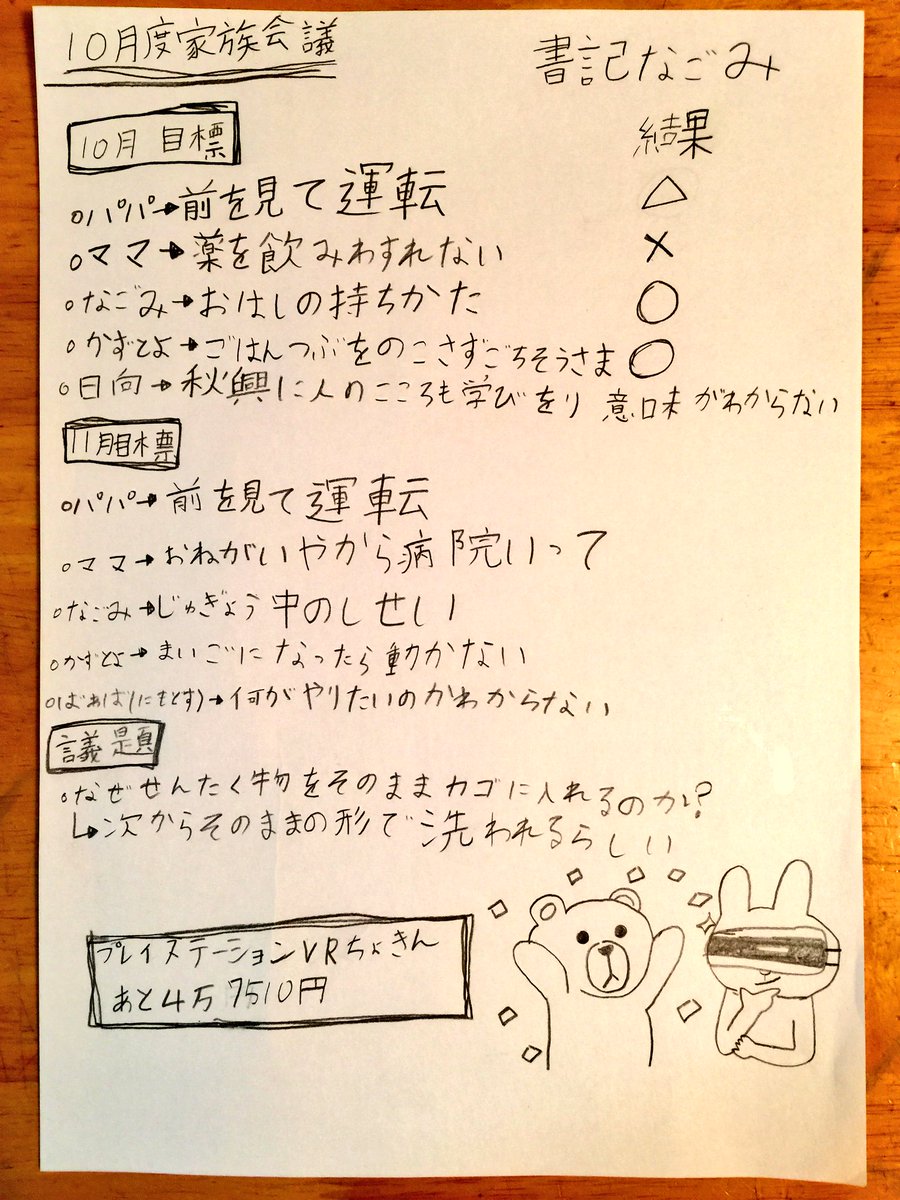 10月度家族会議
書記なごみ
10月 目標
結果
○パパ→前を見て運転 △
○ママ→薬を飲みわすれない ×
○なごみ→おはしの持ちかた ○
○かずとよ→ごはんつぶをのこさずごちそうさま ○
○日向→秋興に人のこころも学びをり 意味がわからない
11月目標
○パパ→前を見て運転
○ママ→おねがいやから病院いって
○なごみ→じゅぎょう中のしせい
○かずとよ→まいごになったら動かない
○ばあば(にもどす)→何がやりたいのかわからない
議題
○なぜせんたく物をそのままカゴに入れるのか?
↳次からそのままの形で洗われるらしい
プレイステーションVRちょきん
あと4万7510円